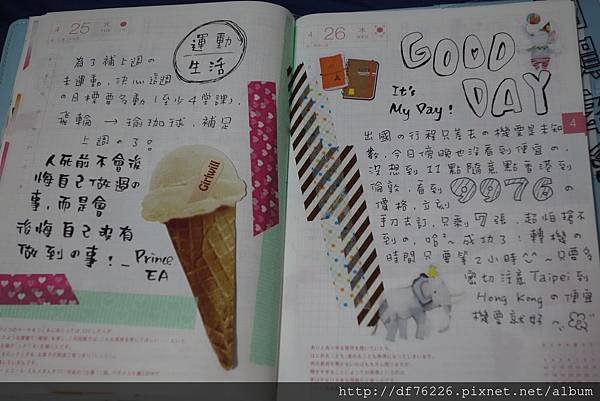 4 25 火
運動
生活
為了補上週の
未運動,決心這週
の目標要多動(至少4堂課),
飛輪 → 瑜珈球,補足
上週の了。
人死前不會後
悔自己做過の
事,而是會
後悔自己沒有
做到の事!_
Prince
EA
Girlwill
4 26 水
GOOD
DAY
It's
My Day!
4
出國の行程只差去の機票是未知
數,今日傍晚也沒看到便宜の,
沒想到11點隨意點香港到
倫敦,看到9976の
價格,立刻
手刀去訂,只剩7張,超怕搶不
到の,哈~成功了!轉機の
時間只要等2小時,只要多
密切注意Taipei到
Hong Kongの便宜
機票就好~
http://df76226.pixnet.net/album